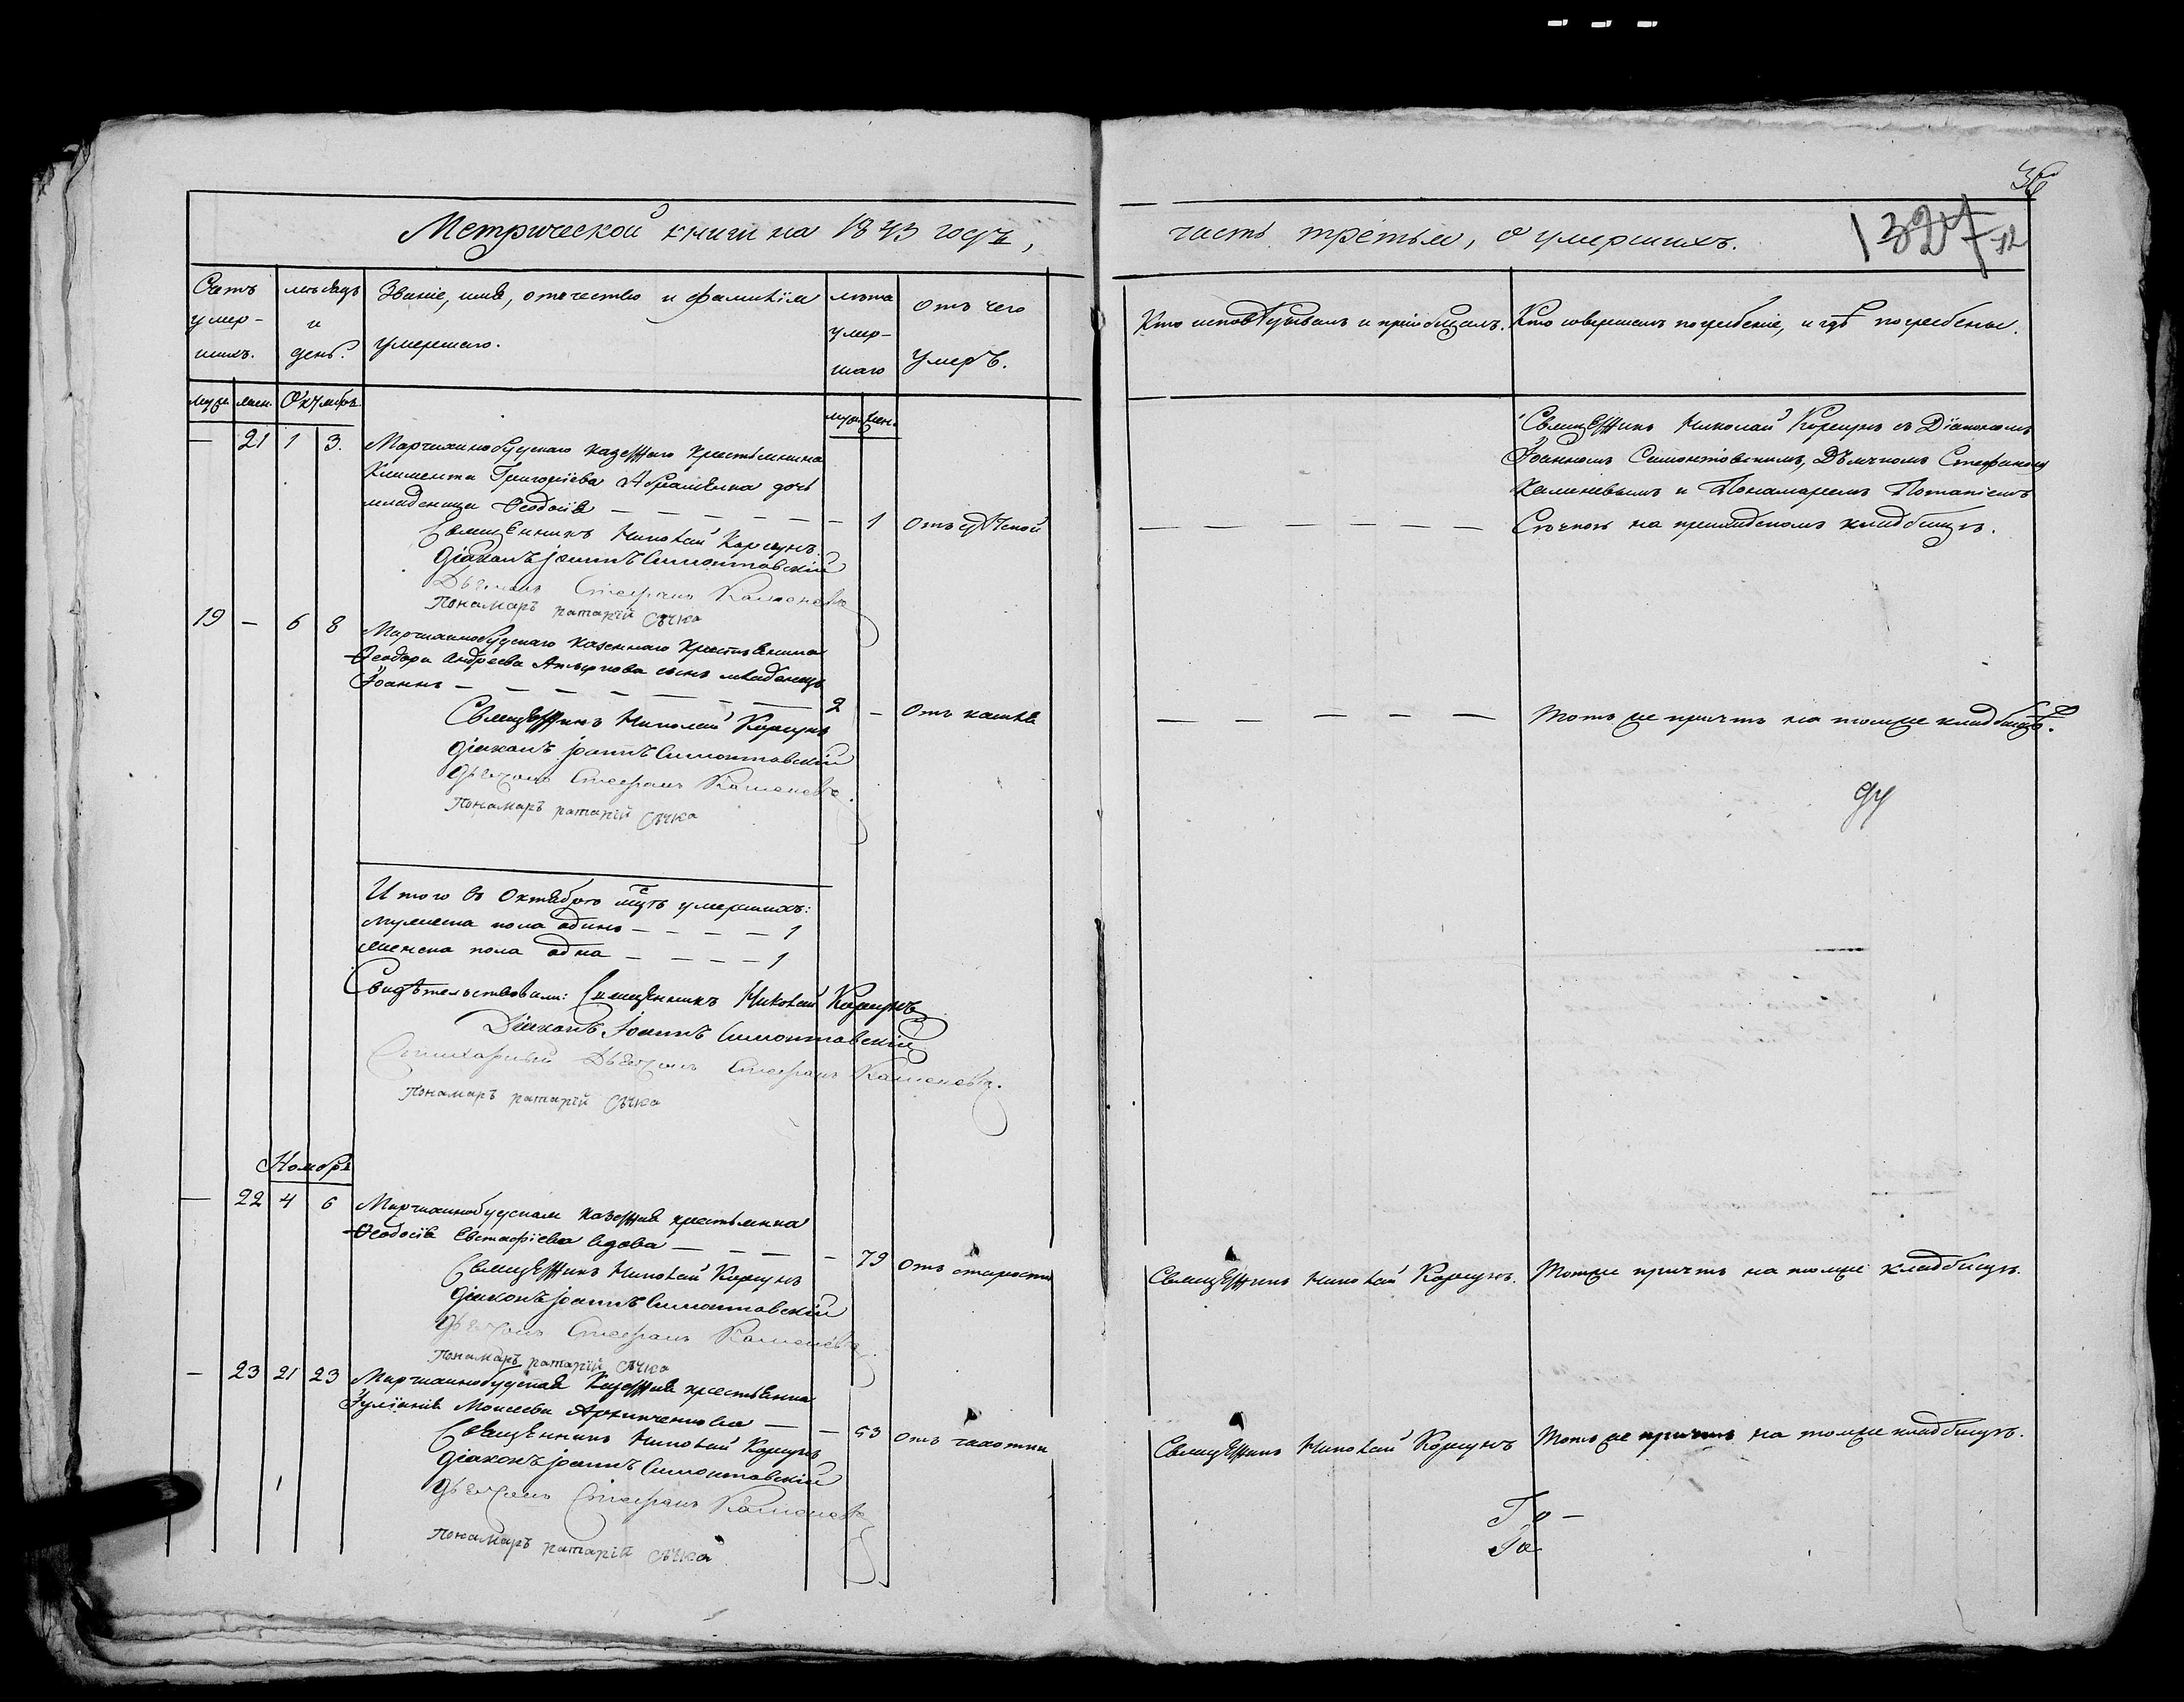 36
1327
12
Метрической книги на 1843 годъ,
часть третья, о умершихъ.
Счетъ умер-шихъ.
мѣсяцъ и день.
Званіе, имя, отечество и фамилія умершаго.
лѣта умер-шаго
отъ чего умеръ.
Кто исповѣдывалъ и пріобщалъ.
Кто совершалъ погребеніе, и гдѣ погребены.
муж. жен. Октябрь
муж. жен.
— 21 1 3. Марчихинобудскаго казеннаго крестьянина
Климента Григоріева Абраменка дочь
младеница Ѳеодосія — — — — — — 1 Отъ
Священникъ Николай Коршунъ.
Діаконъ Іоаннъ Симонтовскій
Дьячокъ Стефанъ Каменевъ
Пономаръ патапій Сѣчка
Священникъ Николай Коршунъ съ Діакономъ
Іоанномъ Симонтовскимъ, Дьячкомъ Стефаномъ
Каменевымъ и Понамаремъ Потапіемъ
— — — — — — — Сѣчкою на приходскомъ кладбищѣ.
19 — 6 8 Марчихинобудскаго казеннаго крестьянина
Ѳеодора Андреева сынъ младенецъ
Іоаннъ — — — — — — 2 — Отъ кашля
Священникъ Николай Коршунъ
Діаконъ Іоаннъ Симонтовскій
Дьячокъ Стефанъ Каменевъ.
Пономаръ патапій Сѣчка
— — — — — — Тотъ же причтъ на томже кладбищѣ.
Итого въ Октябрѣ мцѣ умершихъ:
мужеска пола одинъ — — — — 1
женска пола одна — — — — 1
Свидѣтельствовали: Священникъ Николай Коршунъ
Діаконъ Іоаннъ Симонтовскій
Стихарный Дьячокъ Стефанъ Каменевъ.
Пономаръ патапій Сѣчка
Ноябрь
— 22 4 6 Марчихинобудская казенная крестьянка
Ѳеодосія Евстафіева вдова — — — — 79 Отъ старости
Священникъ Николай Коршунъ
Діаконъ Іоаннъ Симонтовскій
Дьячокъ Стефанъ Каменевъ.
Пономаръ патапій Сѣчка
Священникъ Николай Коршунъ. Тотже причтъ на томже кладбищѣ.
— 23 21 23 Марчихинобудская казенная крестьянка
Іуліанія Моисеева Архипченкова — — 53 Отъ чахотки
Священникъ Николай Коршунъ
Діаконъ Іоаннъ Симонтовскій
Дьячокъ Стефанъ Каменевъ
Пономаръ патапій Сѣчка
Священникъ Николай Коршунъ Тотъ же причтъ на томже кладбищѣ.